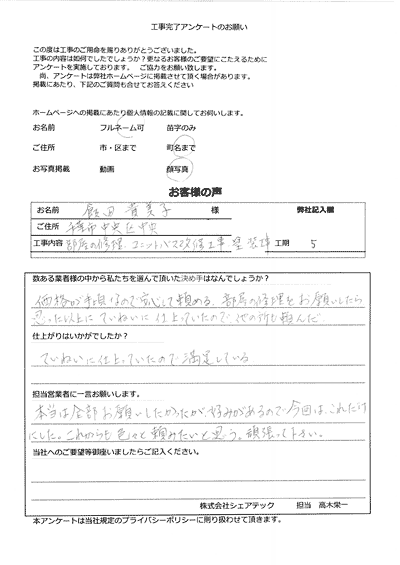 工事完了アンケートのお願い
この度は工事のご用命を賜りありがとうございました。
工事の内容は如何でしたでしょうか？更なるお客様のご要望にこたえるために
アンケートを実施しております。　ご協力をお願い致します。
尚、アンケートは弊社ホームページに掲載させて頂く場合があります。
掲載にあたり、下記のご質問も合せてお答えください
ホームページへの掲載にあたり個人情報の記載に関してお伺いします。
お名前　フルネーム可　苗字のみ
ご住所　市・区まで　町名まで
お写真掲載　動画　顔写真
お客様の声
お名前　飯田 貴美子　様　弊社記入欄
ご住所　千葉市中央区中央
工事内容　部屋の修理 ユニットバス改修工事 塗装　工期　5
数ある業者様の中から私たちを選んで頂いた決め手はなんでしょうか？
価格が手頃なので安心して頼める、部屋の修理をお願いしたら
思った以上にていねいに仕上っていたので他の所も頼んだ
仕上がりはいかがでしたか？
ていねいに仕上っていたので満足している
担当営業者に一言お願いします。
本当は全部お願いしたかったが、好みがあるので今回は、これだけ
にした。これからも色々と頼みたいと思う。頑張って下さい。
当社へのご要望等御座いましたらご記入ください。
株式会社シェアテック　担当　高木栄一
本アンケートは当社規定のプライバシーポリシーに則り扱わせて頂きます。